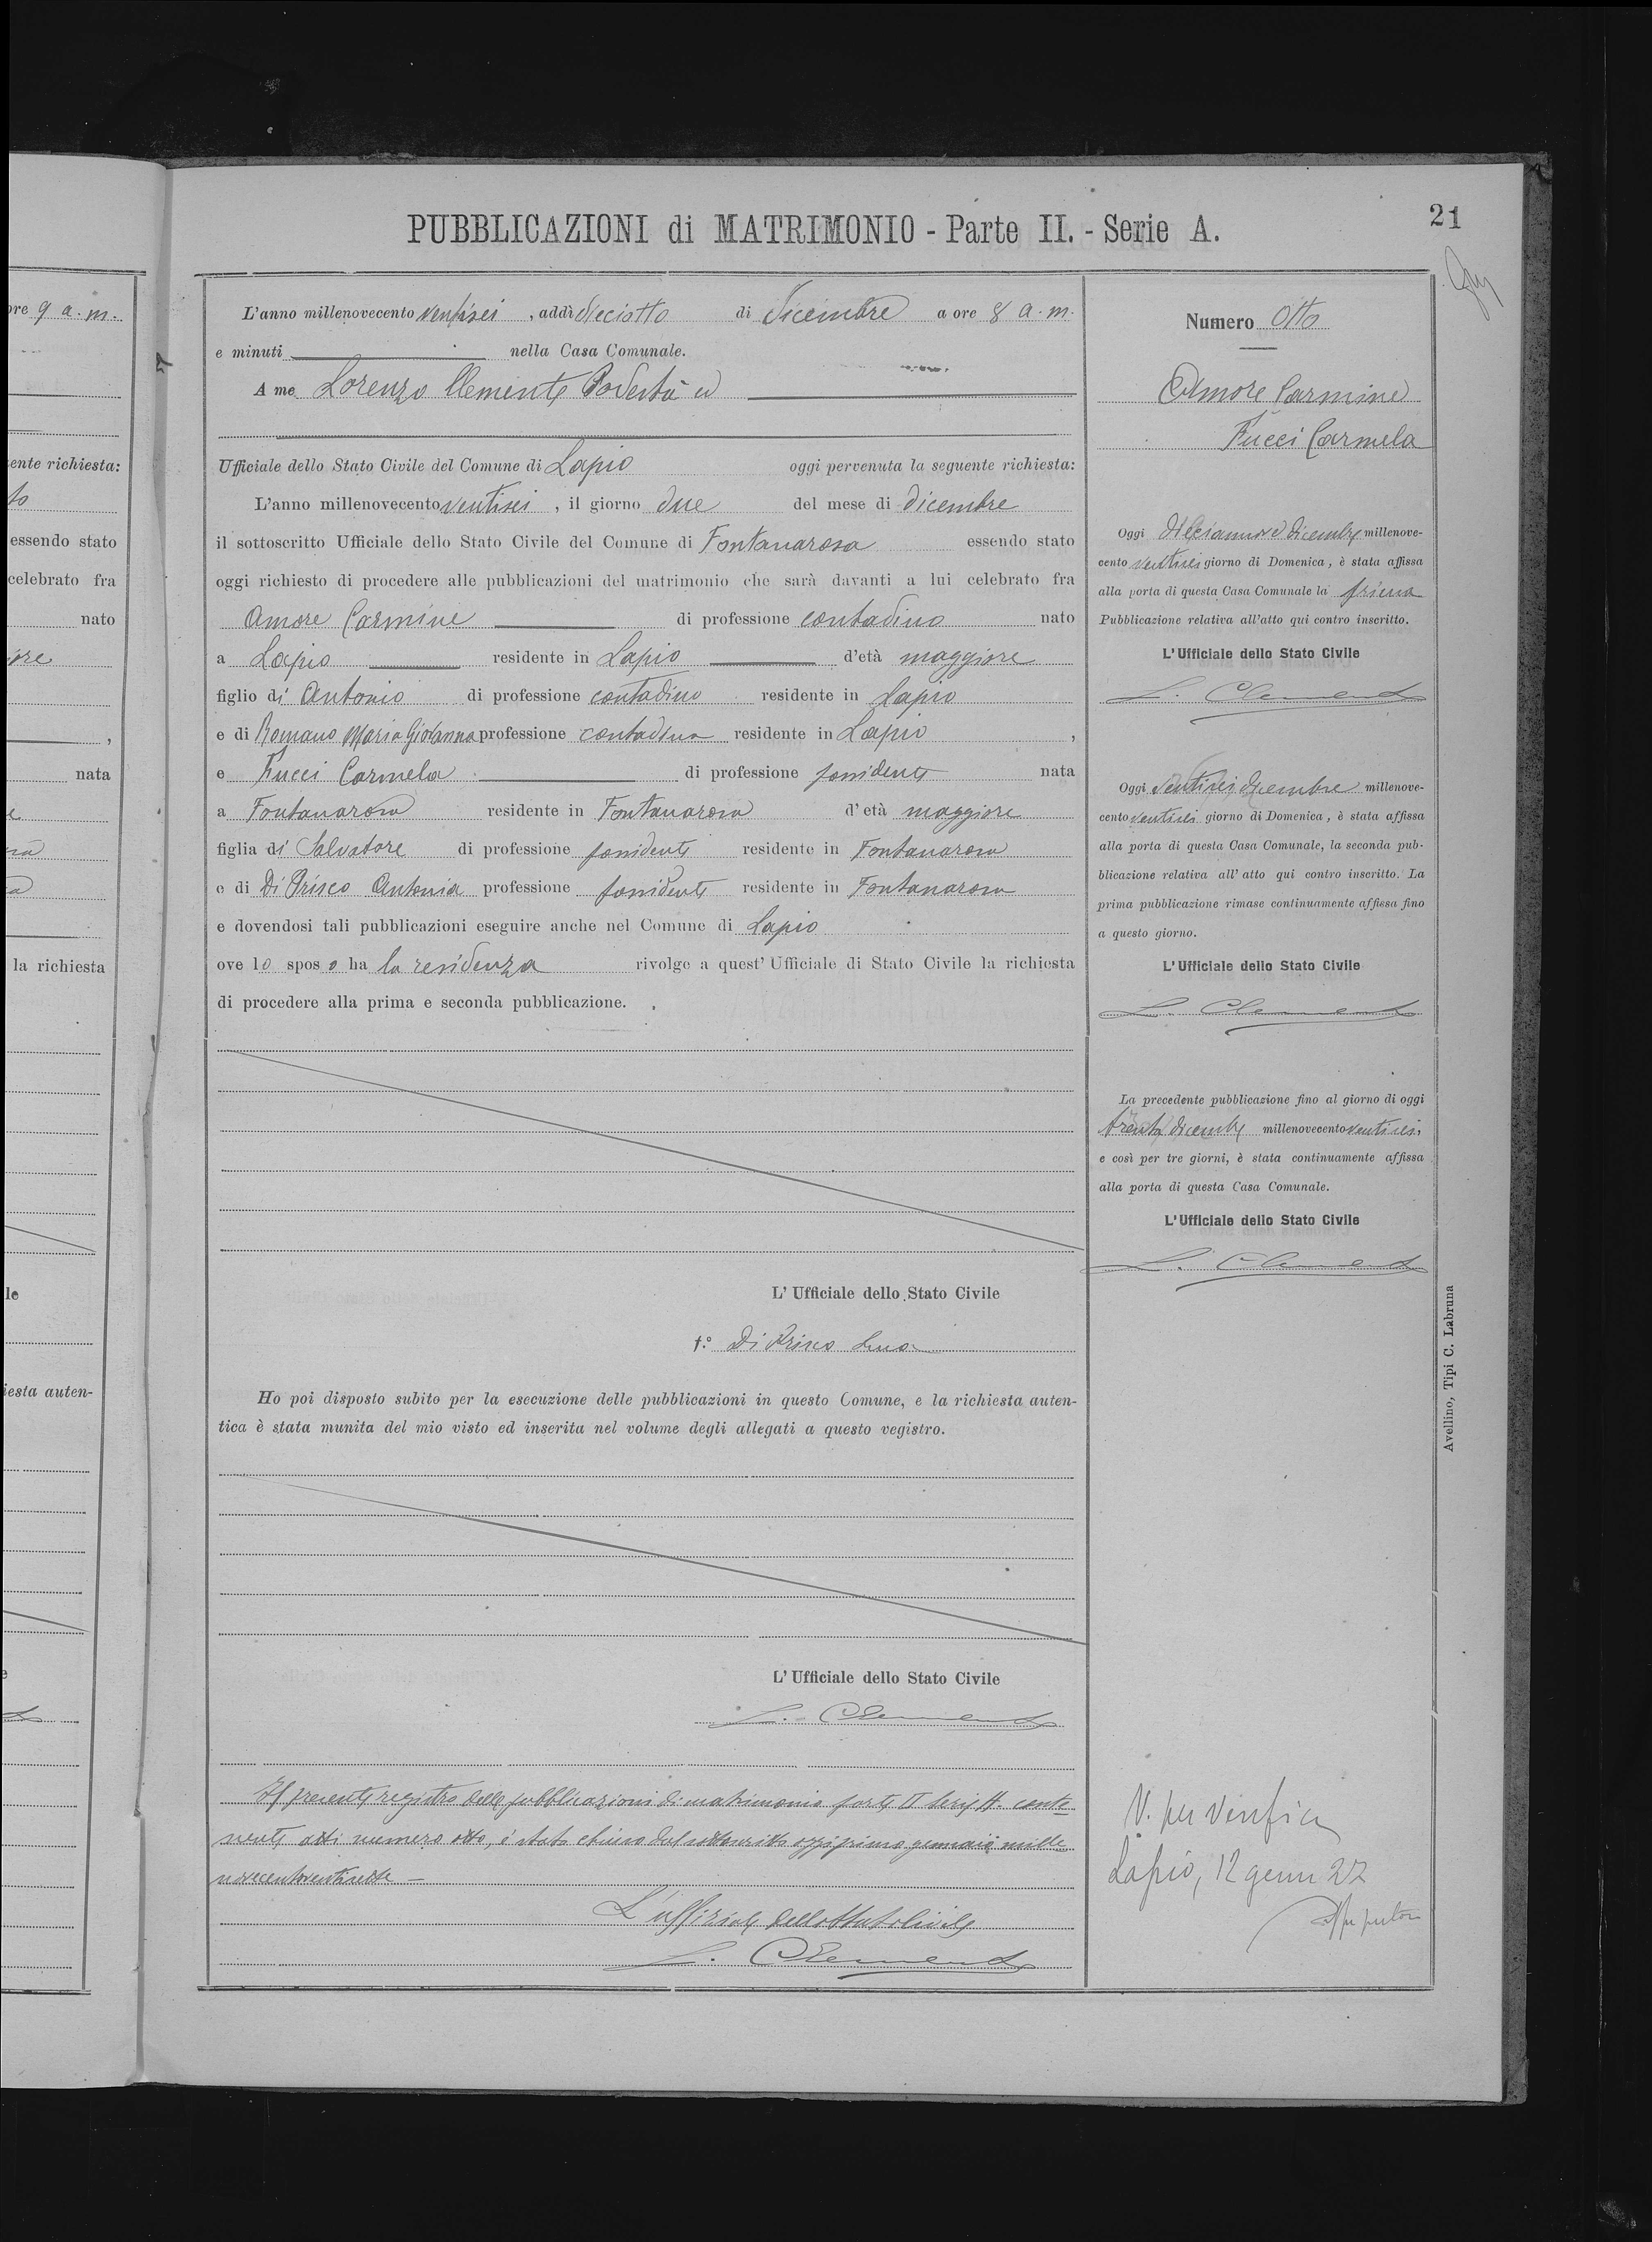 PUBBLICAZIONI di MATRIMONIO - Parte II. - Serie A.
21
L'anno millenovecento ventisei, addì dieciotto di Dicembre a ore 8 a.m.
e minuti nella Casa Comunale.
A me Lorenzo Clemente Podestà ed
Ufficiale dello Stato Civile del Comune di Lapio oggi pervenuta la seguente richiesta:
L'anno millenovecento ventisei, il giorno due del mese di dicembre
il sottoscritto Ufficiale dello Stato Civile del Comune di Fontanarosa essendo stato
oggi richiesto di procedere alle pubblicazioni del matrimonio che sarà davanti a lui celebrato fra
Amore Carmine di professione contadino nato
a Lapio residente in Lapio d'età maggiore
figlio di Antonio di professione contadino residente in Lapio
e di Romano Maria Giovanna professione contadina residente in Lapio,
e Fucci Carmela di professione possidente nata
a Fontanarosa residente in Fontanarosa d'età maggiore
figlia di Salvatore di professione possidente residente in Fontanarosa
e di Di Prisco Antonia professione possidente residente in Fontanarosa
e dovendosi tali pubblicazioni eseguire anche nel Comune di Lapio
ove lo sposo ha la residenza rivolge a quest'Ufficiale di Stato Civile la richiesta
di procedere alla prima e seconda pubblicazione.
L'Ufficiale dello Stato Civile
f.° Di Prisco
Ho poi disposto subito per la esecuzione delle pubblicazioni in questo Comune, e la richiesta auten-
tica è stata munita del mio visto ed inserita nel volume degli allegati a questo vegistro.
L'Ufficiale dello Stato Civile
L. Clemente
Il presente registro delle pubblicazioni di matrimonio parte II serie A. conte
nente atti numero otto, è stato chiuso dal sottoscritto oggi primo gennaio mille
novecentoventisette -
L'uffiziale dello Stato Civile
L. Clemente
Numero Otto
Amore Carmine
Fucci Carmela
Oggi diciannove dicembre millenove-
cento ventisei giorno di Domenica, è stata affissa
alla porta di questa Casa Comunale la prima
Pubblicazione relativa all'atto qui contro inscritto.
L'Ufficiale dello Stato Civile
L. Clemente
Oggi ventisei dicembre millenove-
cento ventisei giorno di Domenica, è stata affissa
alla porta di questa Casa Comunale, la seconda pub-
blicazione relativa all'atto qui contro inscritto. La
prima pubblicazione rimase continuamente affissa fino
a questo giorno.
L'Ufficiale dello Stato Civile
L. Clemente
La precedente pubblicazione fino al giorno di oggi
trenta dicembre millenovecento ventisei,
e così per tre giorni, è stata continuamente affissa
alla porta di questa Casa Comunale.
L'Ufficiale dello Stato Civile
L. Clemente
V. per verifica
Lapio, 12 genn 27
Avellino, Tipi C. Labruna
ore 9 a.m.
ente richiesta:
to
essendo stato
celebrato fra
nato
ore
,
nata
la richiesta
le
iesta auten-